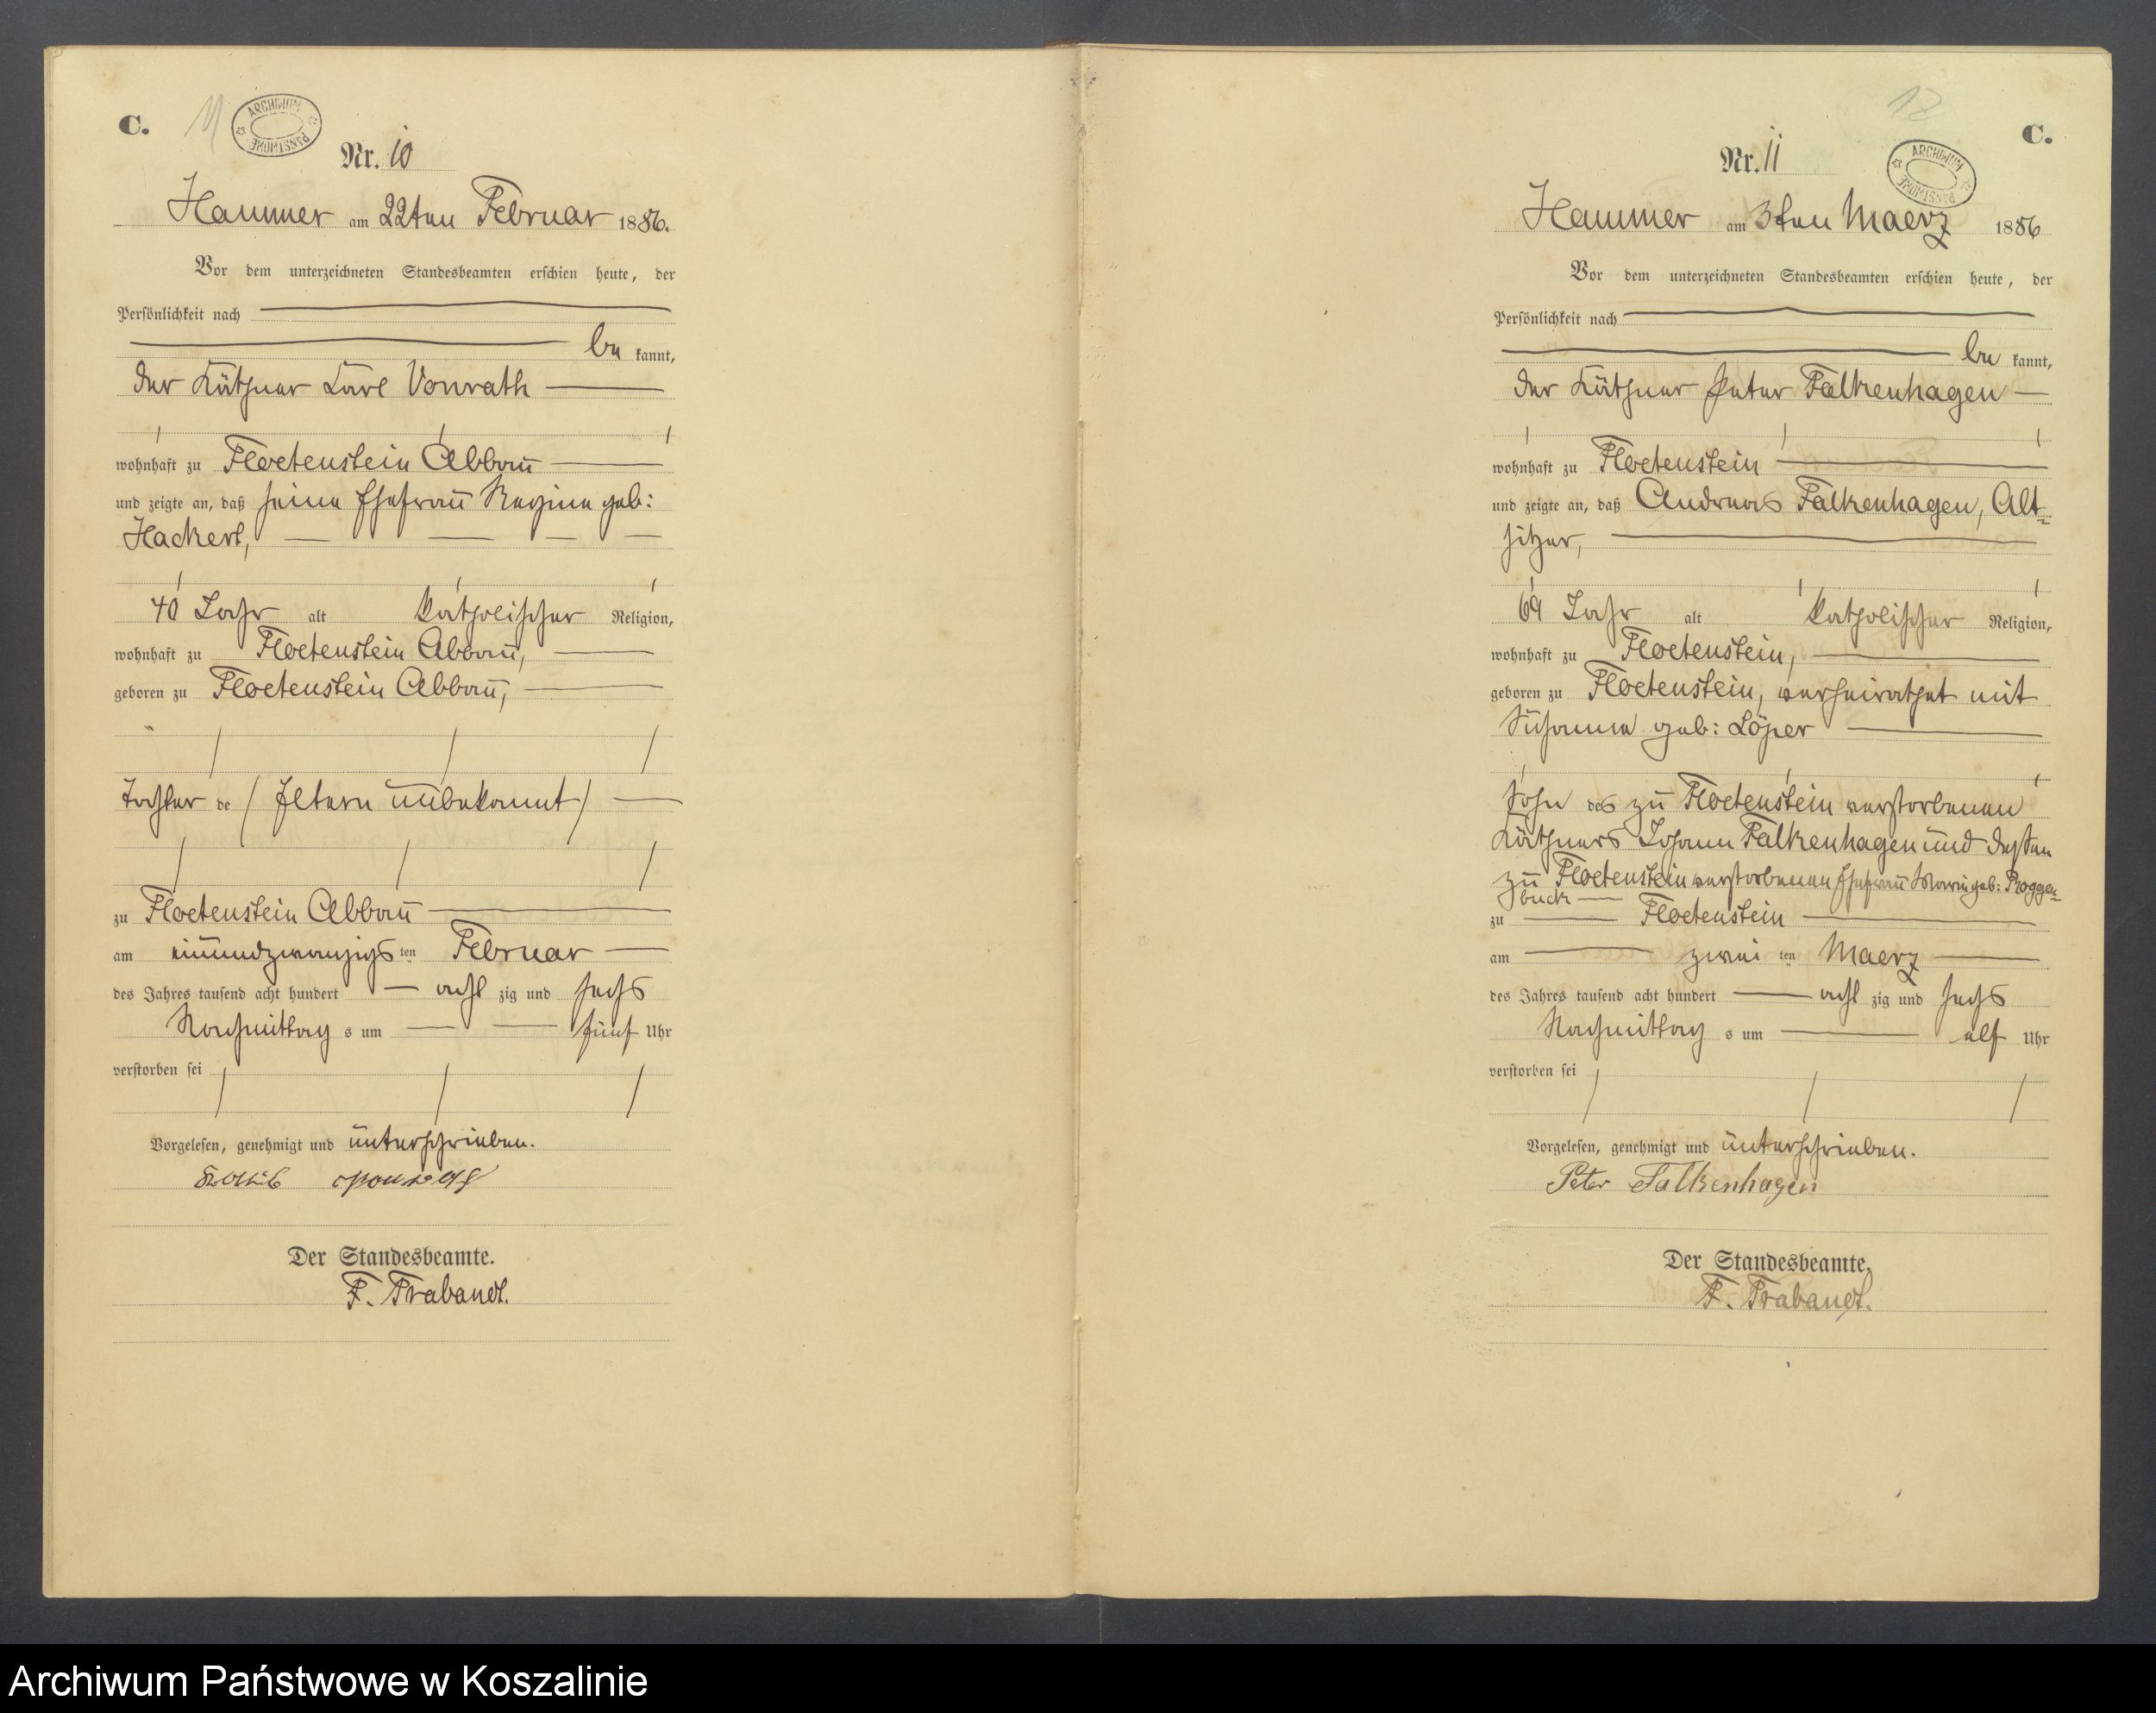 C.
11
ARCHIWUM PAŃSTWOWE
Nr. 10
Hammer am 22ten Februar 1886.
Vor dem unterzeichneten Standesbeamten erschien heute, der
Persönlichkeit nach
be kannt,
der Käthner Carl Vonrath
wohnhaft zu Floetenstein Abbau
und zeigte an, daß seine Ehefrau Regine geb:
Hackert,
40 Jahr alt katholischer Religion,
wohnhaft zu Floetenstein Abbau,
geboren zu Floetenstein Abbau,
Tochter de (Eltern unbekannt)
zu Floetenstein Abbau
am einundzwanzigsten Februar
des Jahres tausend acht hundert achtzig und sechs
Nachmittags um fünf Uhr
verstorben sei
Vorgelesen, genehmigt und unterschrieben.
Der Standesbeamte.
F. Trabandt.
12
C.
ARCHIWUM PAŃSTWOWE
Nr. 11
Hammer am 3ten Maerz 1886
Vor dem unterzeichneten Standesbeamten erschien heute, der
Persönlichkeit nach
be kannt,
der Käthner Peter Falkenhagen
wohnhaft zu Floetenstein
und zeigte an, daß Andreas Falkenhagen, Alt=
sitzer,
69 Jahr alt katholischer Religion,
wohnhaft zu Floetenstein,
geboren zu Floetenstein, verheirathet mit
Susanna geb: Löper
Sohn des zu Floetenstein verstorbenen
Käthners Johann Falkenhagen und dessen
zu Floetenstein verstorbenen Ehefrau Marie geb: Roggen=
buck
zu Floetenstein
am zweiten Maerz
des Jahres tausend acht hundert achtzig und sechs
Nachmittags um elf Uhr
verstorben sei
Vorgelesen, genehmigt und unterschrieben.
Peter Falkenhagen
Der Standesbeamte.
F. Trabandt.
Archiwum Państwowe w Koszalinie